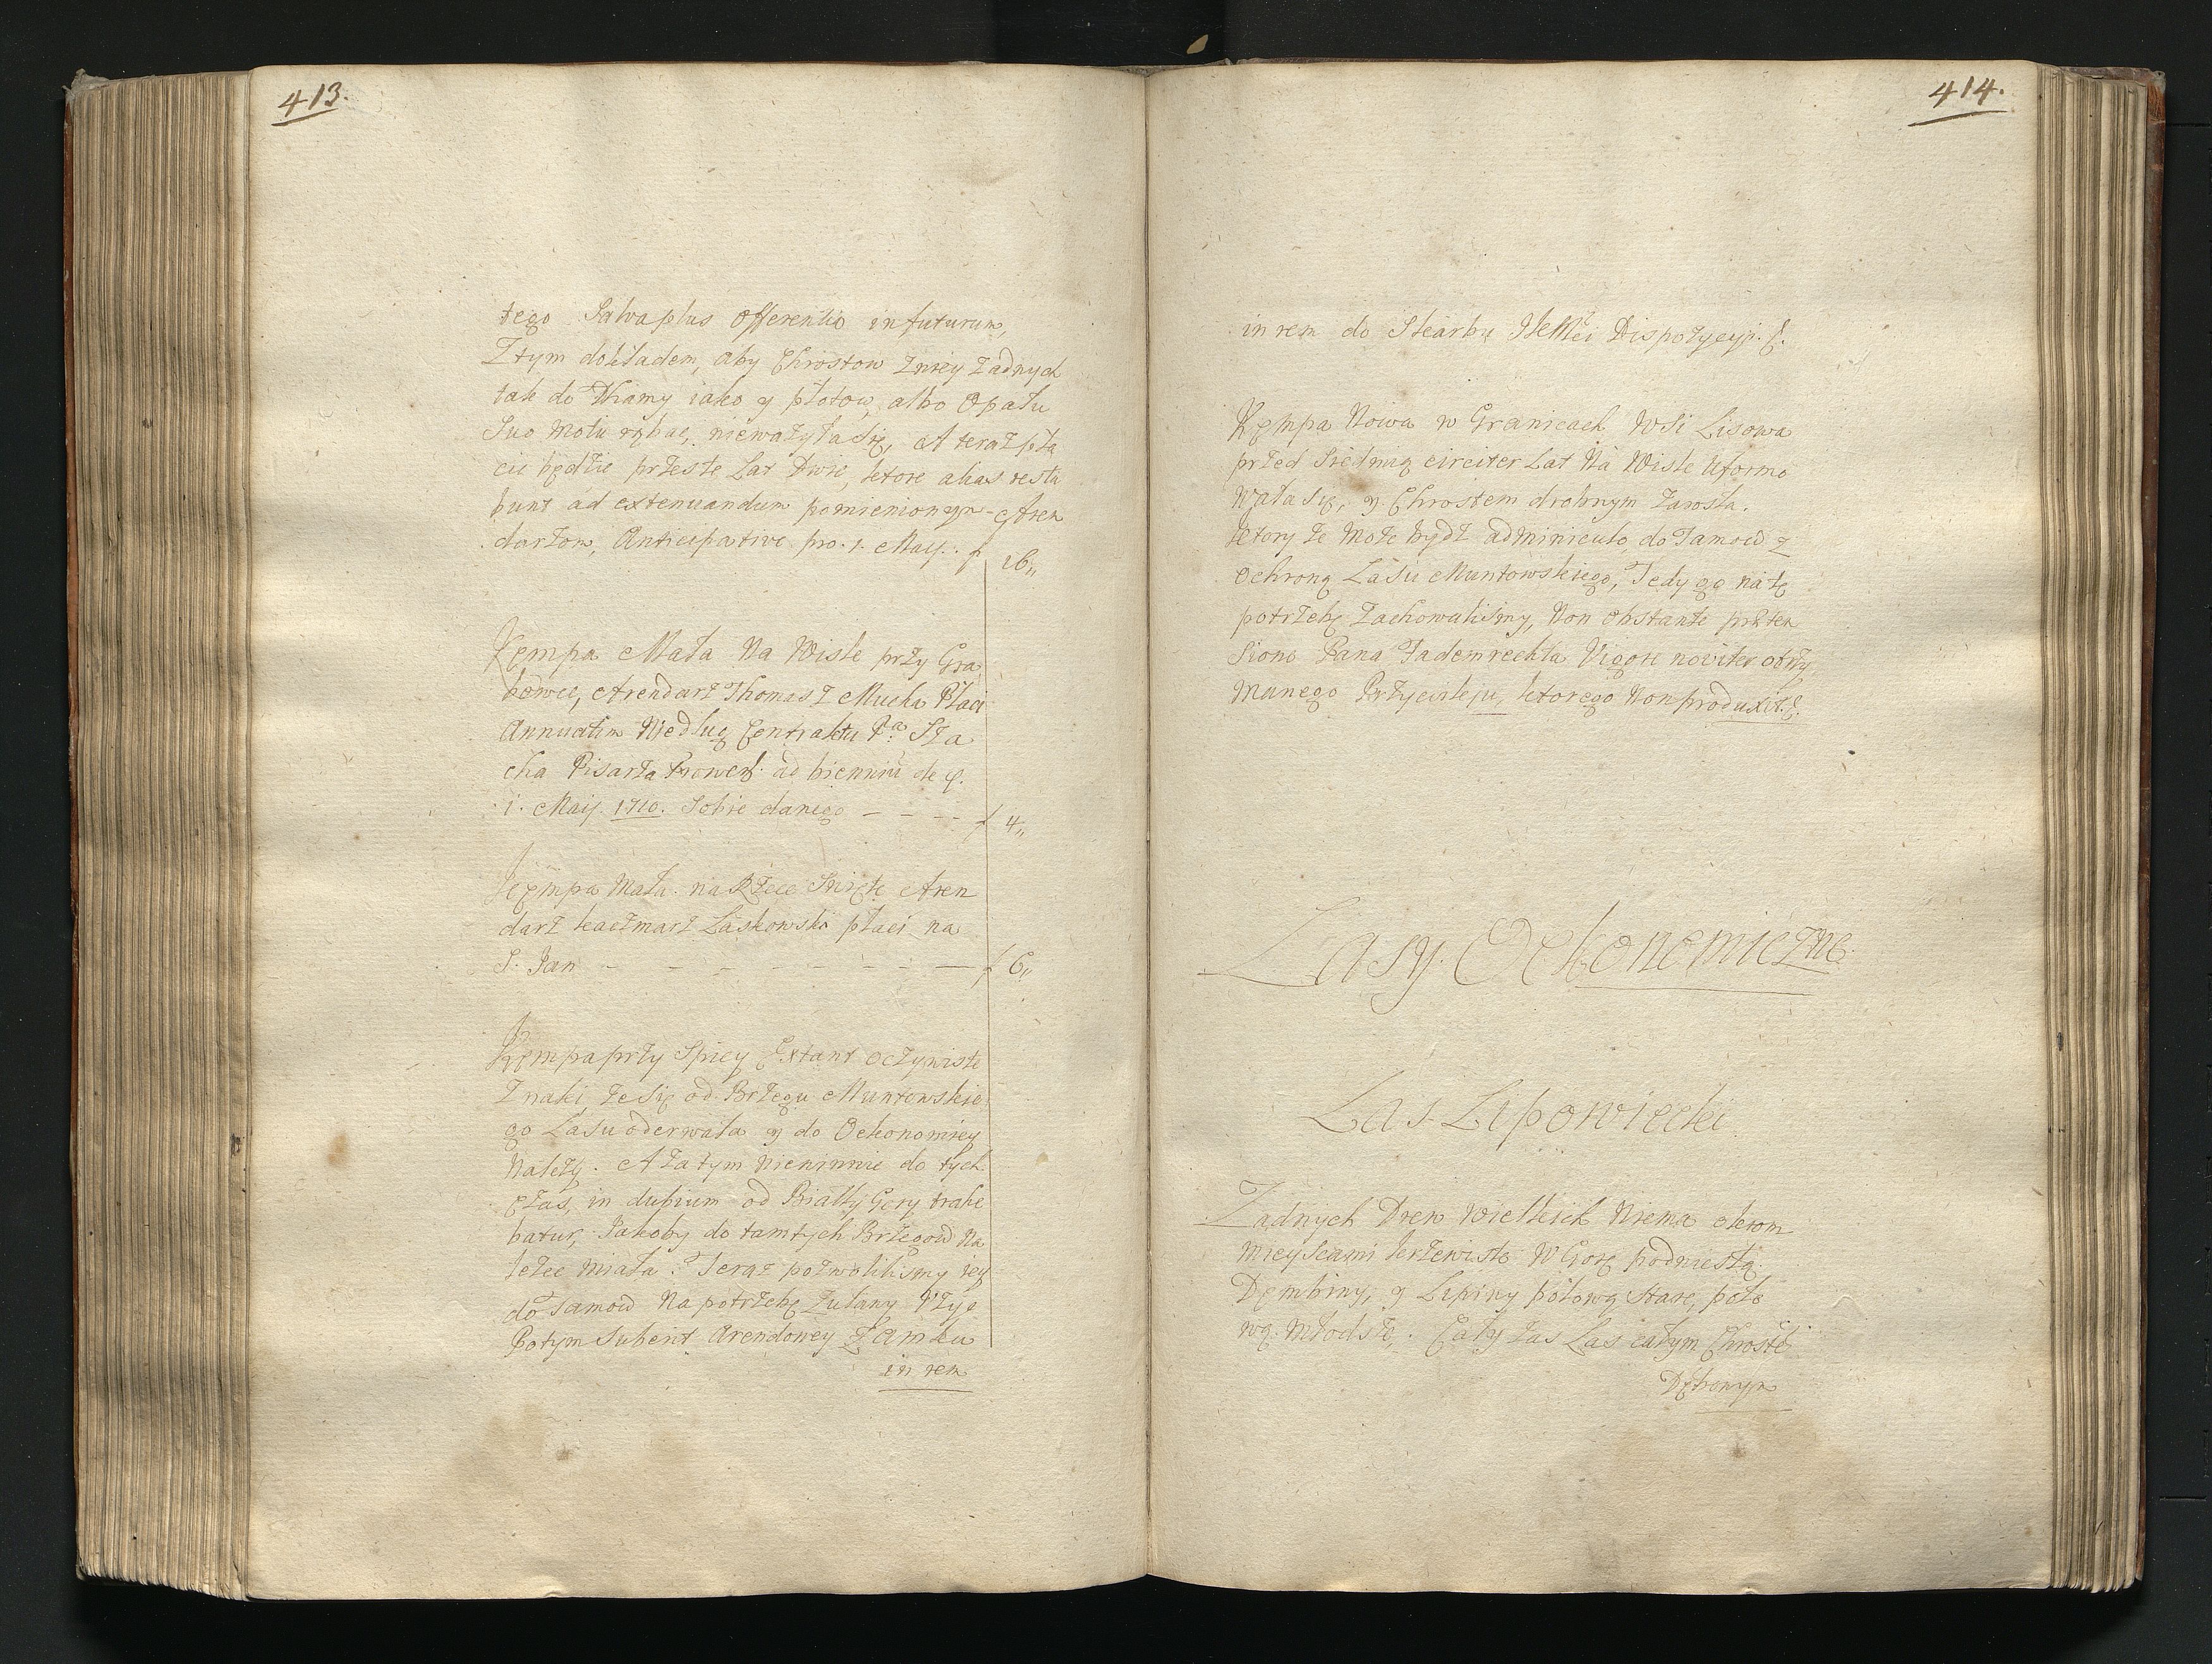 413.
tego Salva plus offerentio in futurum,
Z tym dokładem, aby Chrostow zniey żadnych
tak do Thamy iako y płotow, albo Opału
Suo motu rąbać, nieważyła się, A teraz pła
cic będzie przeste Lat Dwie, ktore alias resta
bunt ad extenuandum pomienionym Aren
darzom, Anticipative pro. 1. Maij. f 16,,
Kempa Mała Na Wisle przy Gra
bowce, Arendarz Thomas z Mucha Płaci
Annuatim Wedlug Contraktu Pa Sta
cha Pisarza Prowent. ad bienniu de
1. Maij. 1710. Sobie danego - - - - f 4,,
Kempa Mała na Rzece Swięte Aren
darz kaczmarz Laskowski płaci na
S. Jan - - - - - - - - f 6,,
Kempa przy Spicy Extant oczywiste
Znaki że się od Brzegu Muntowskie
go Lasu oderwała y do Oekonomiey
Należy. A zatym Niewinnie do tych
czas, in dubium od Białły Gory trahe
batur, Jakoby do tamtych Brzegow Na
leżec miała. Teraz pozwoliliśmy iey
do Tamow Na potrzebę Zulawy Użyć
Potym Suberit Arendowey Zamku
in rem
414.
in rem do Skarbu Dispozycyi.
Kempa Nowa w Granicach Wsi Lisowa
przed Siedmią circiter Lat Na Wisle Uformo
wała się, y Chrostem drobnym Zarosła.
Ktory że może bydź adminiculo do Tamow z
Ochroną Lasu Muntowskiego, Tedy go na tę
potrzebę Zachowaliśmy, Non obstante præten
sione Pana Tademrechta Vigore noviter otrzy
manego Przywileju, ktorego Non produxit.
Lasy Oekonomiczne.
Las Lipowiecki
Zadnych Drew Wielkich Niema okrom
mieyscami krzewisto W Gorę podniesłą
Dembiny, y Lipiny połową Stare, poło
wą Młodsze. Cały zas Las całym Chroste
Dębowym